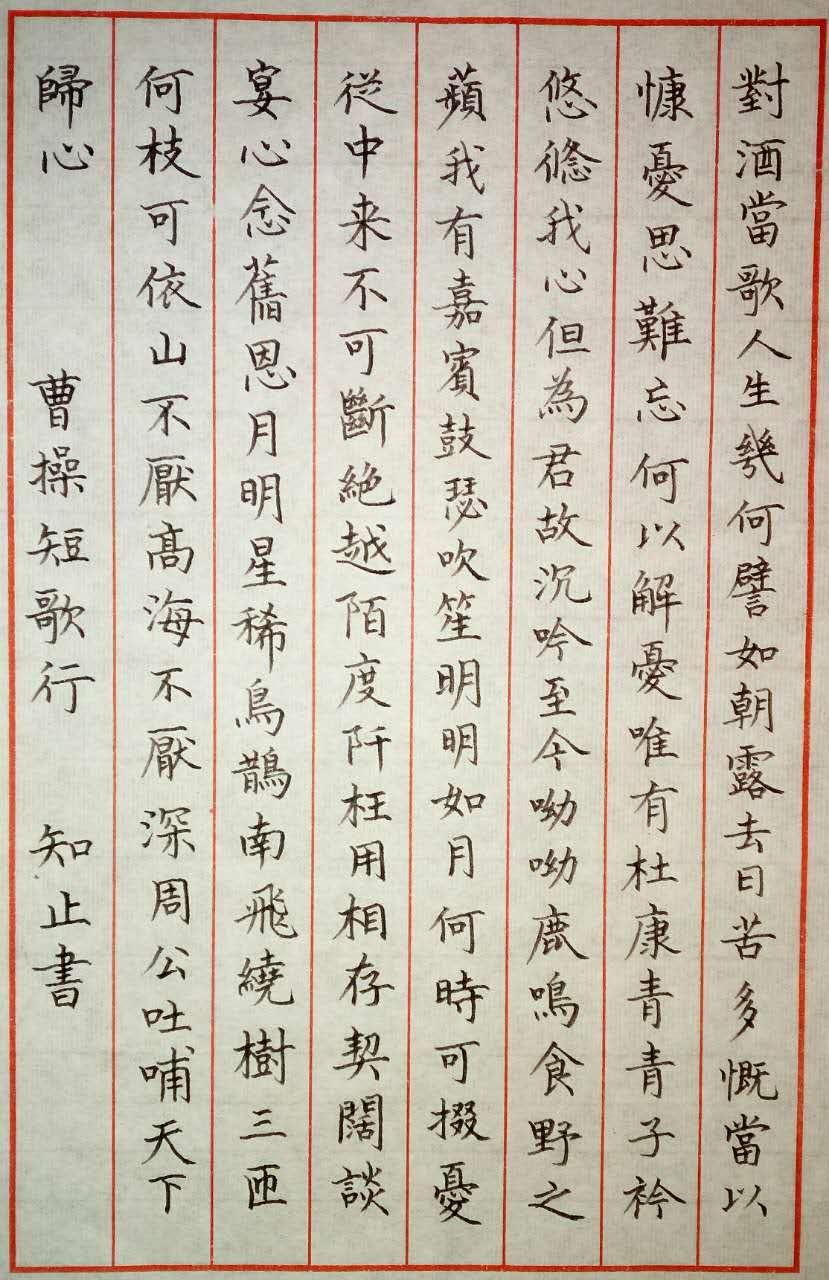 對酒當歌人生幾何譬如朝露去日苦多慨當以
慷憂思難忘何以解憂唯有杜康青青子衿
悠悠我心但為君故沉吟至今呦呦鹿鳴食野之
蘋我有嘉賓鼓瑟吹笙明明如月何時可掇憂
從中来不可斷絕越陌度阡枉用相存契闊談
宴心念舊恩月明星稀烏鵲南飛繞樹三匝
何枝可依山不厭高海不厭深周公吐哺天下
歸心 曹操短歌行 知止書